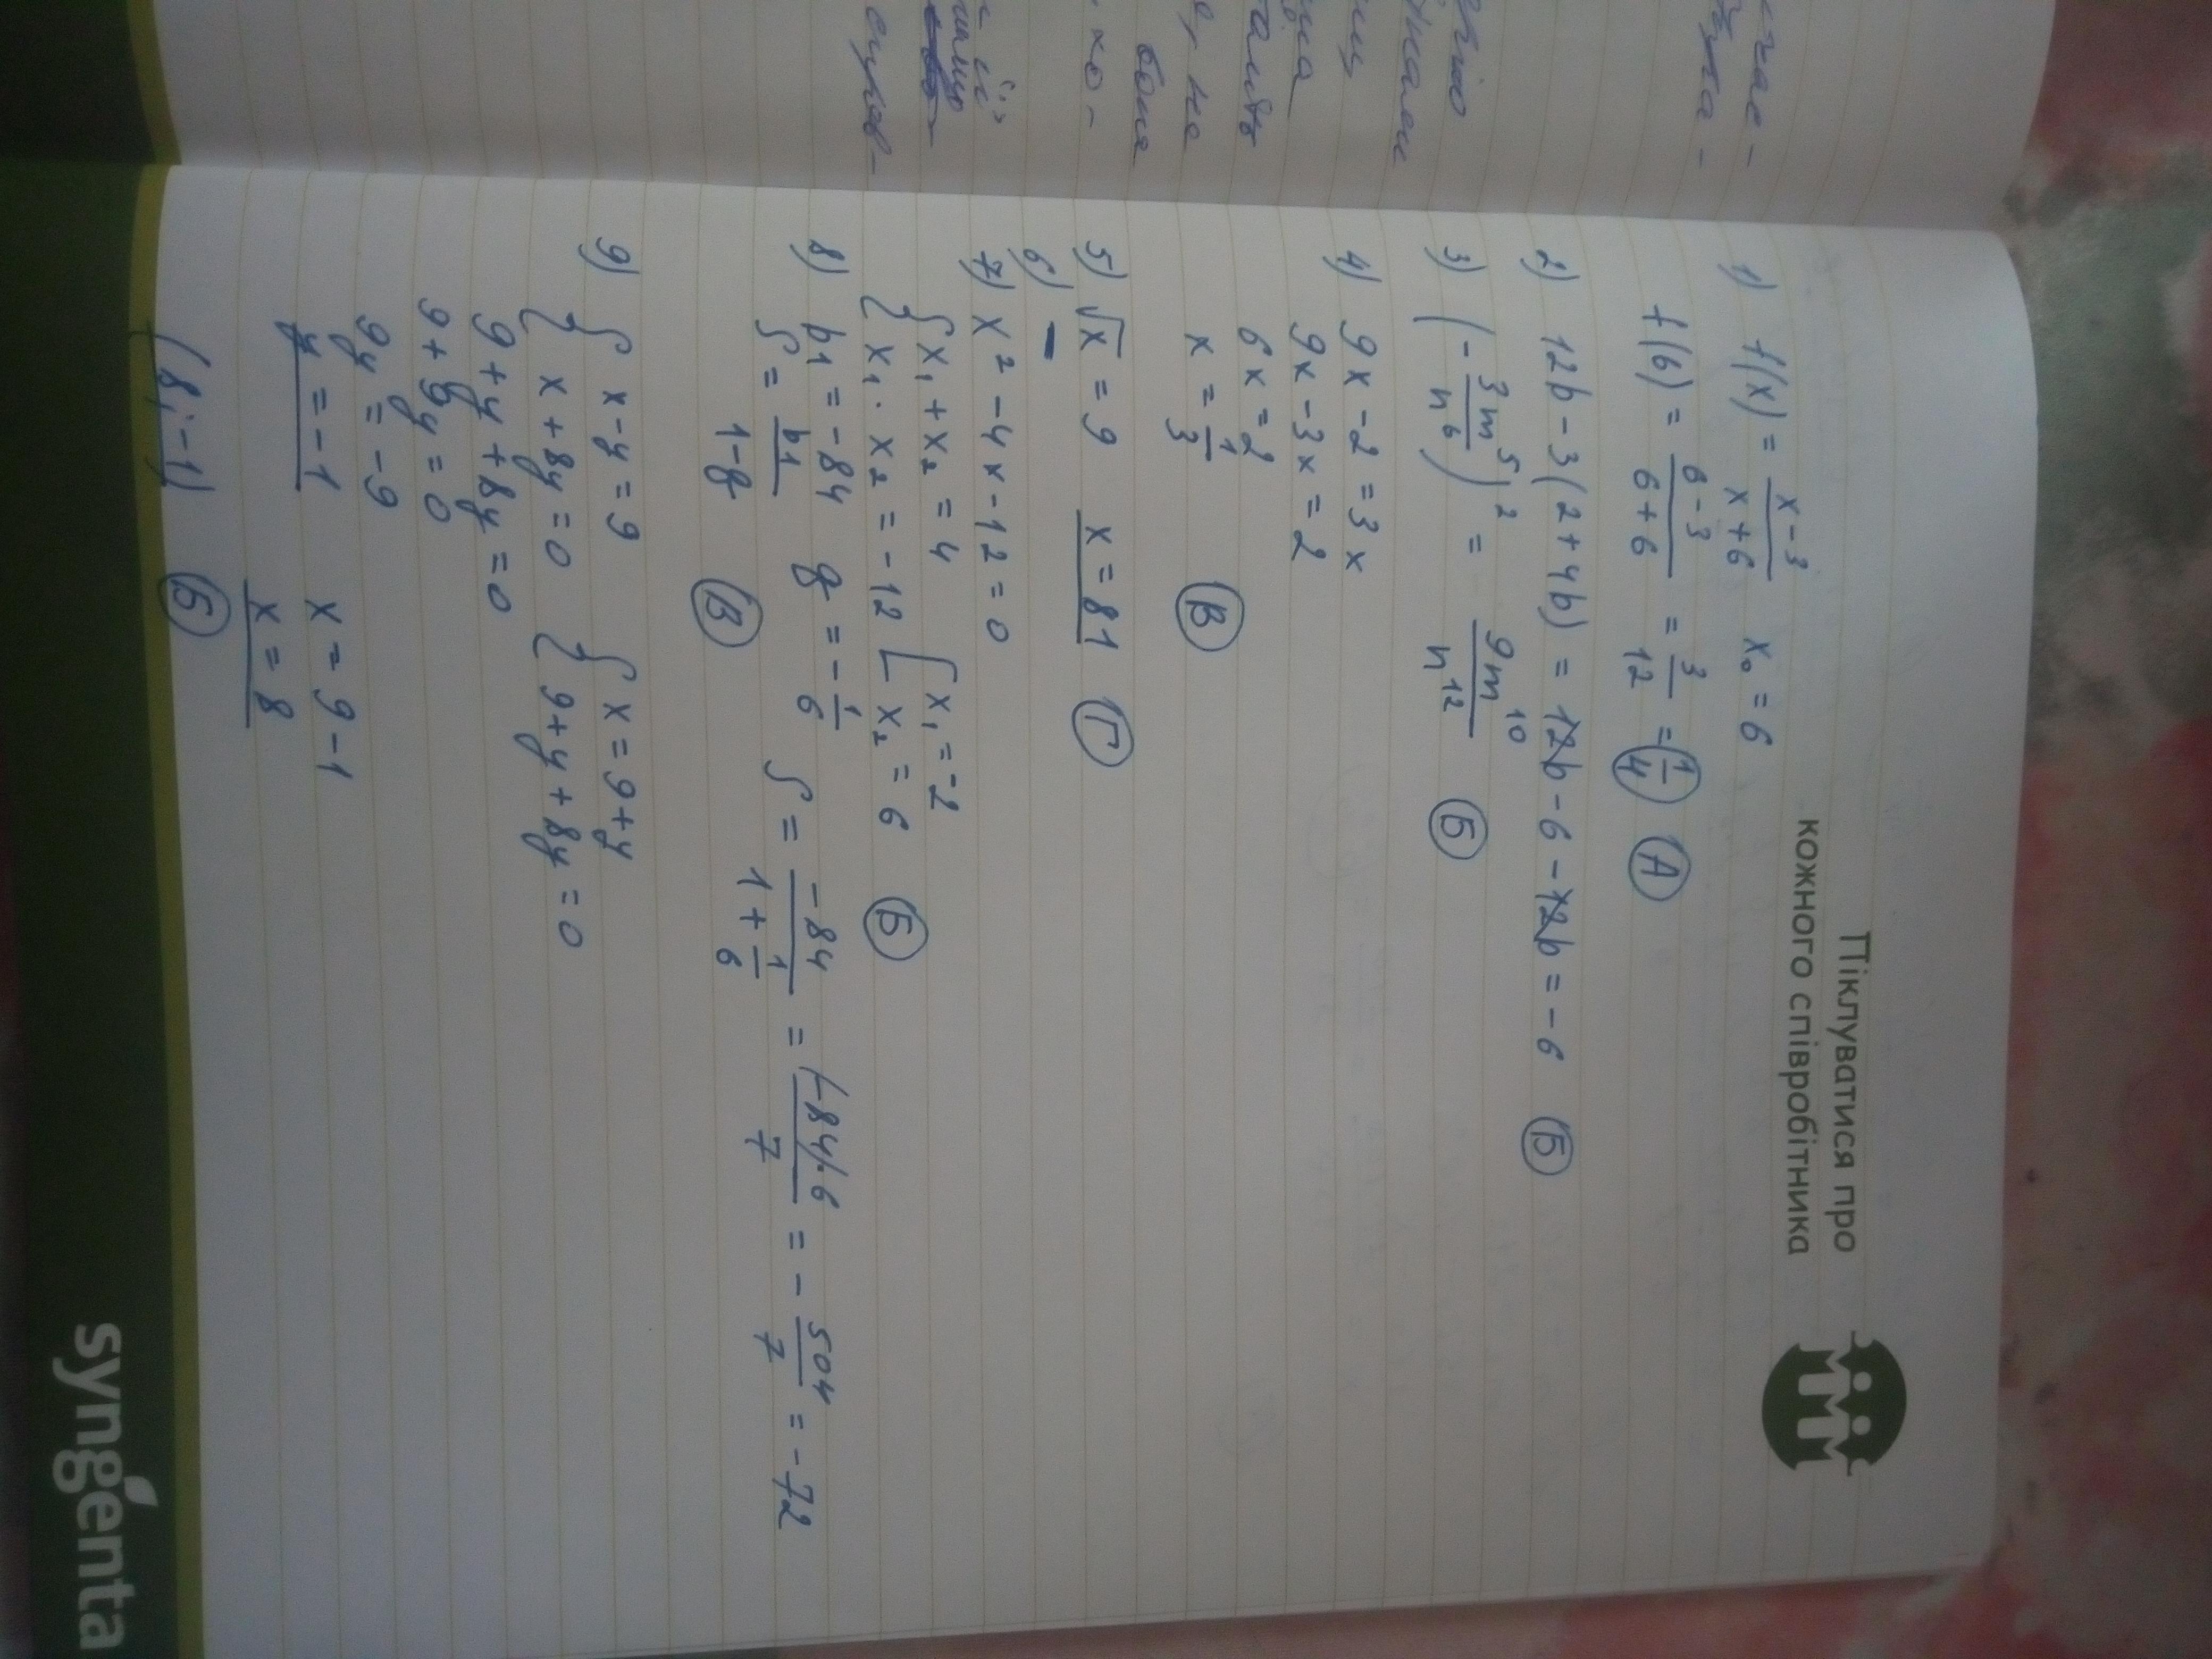 Піклуватися про
кожного співробітника
1) f(x) = x-3/x+6 x₀ = 6
f(6) = 6-3/6+6 = 3/12 = 1/4 А
2) 12b - 3(2+4b) = 12b - 6 - 12b = -6 Б
3) (-3m⁵/n⁶)² = 9m¹⁰/n¹² Б
4) 9x - 2 = 3x
9x - 3x = 2
6x = 2
x = 1/3 В
5) √x = 9 x = 81 Г
6) –
7) x² - 4x - 12 = 0
{ x₁ + x₂ = 4 [ x₁ = -2
{ x₁ · x₂ = -12 [ x₂ = 6 Б
8) b1 = -84 q = -1/6 S = -84/1+1/6 = (-84)·6/7 = -504/7 = -72
S = b1/1-q В
9) { x - y = 9 { x = 9 + y
{ x + 8y = 0 { 9 + y + 8y = 0
9 + y + 8y = 0
9 + 9y = 0
9y = -9 x = 9 - 1
y = -1 x = 8
(8; -1) Б
syngenta